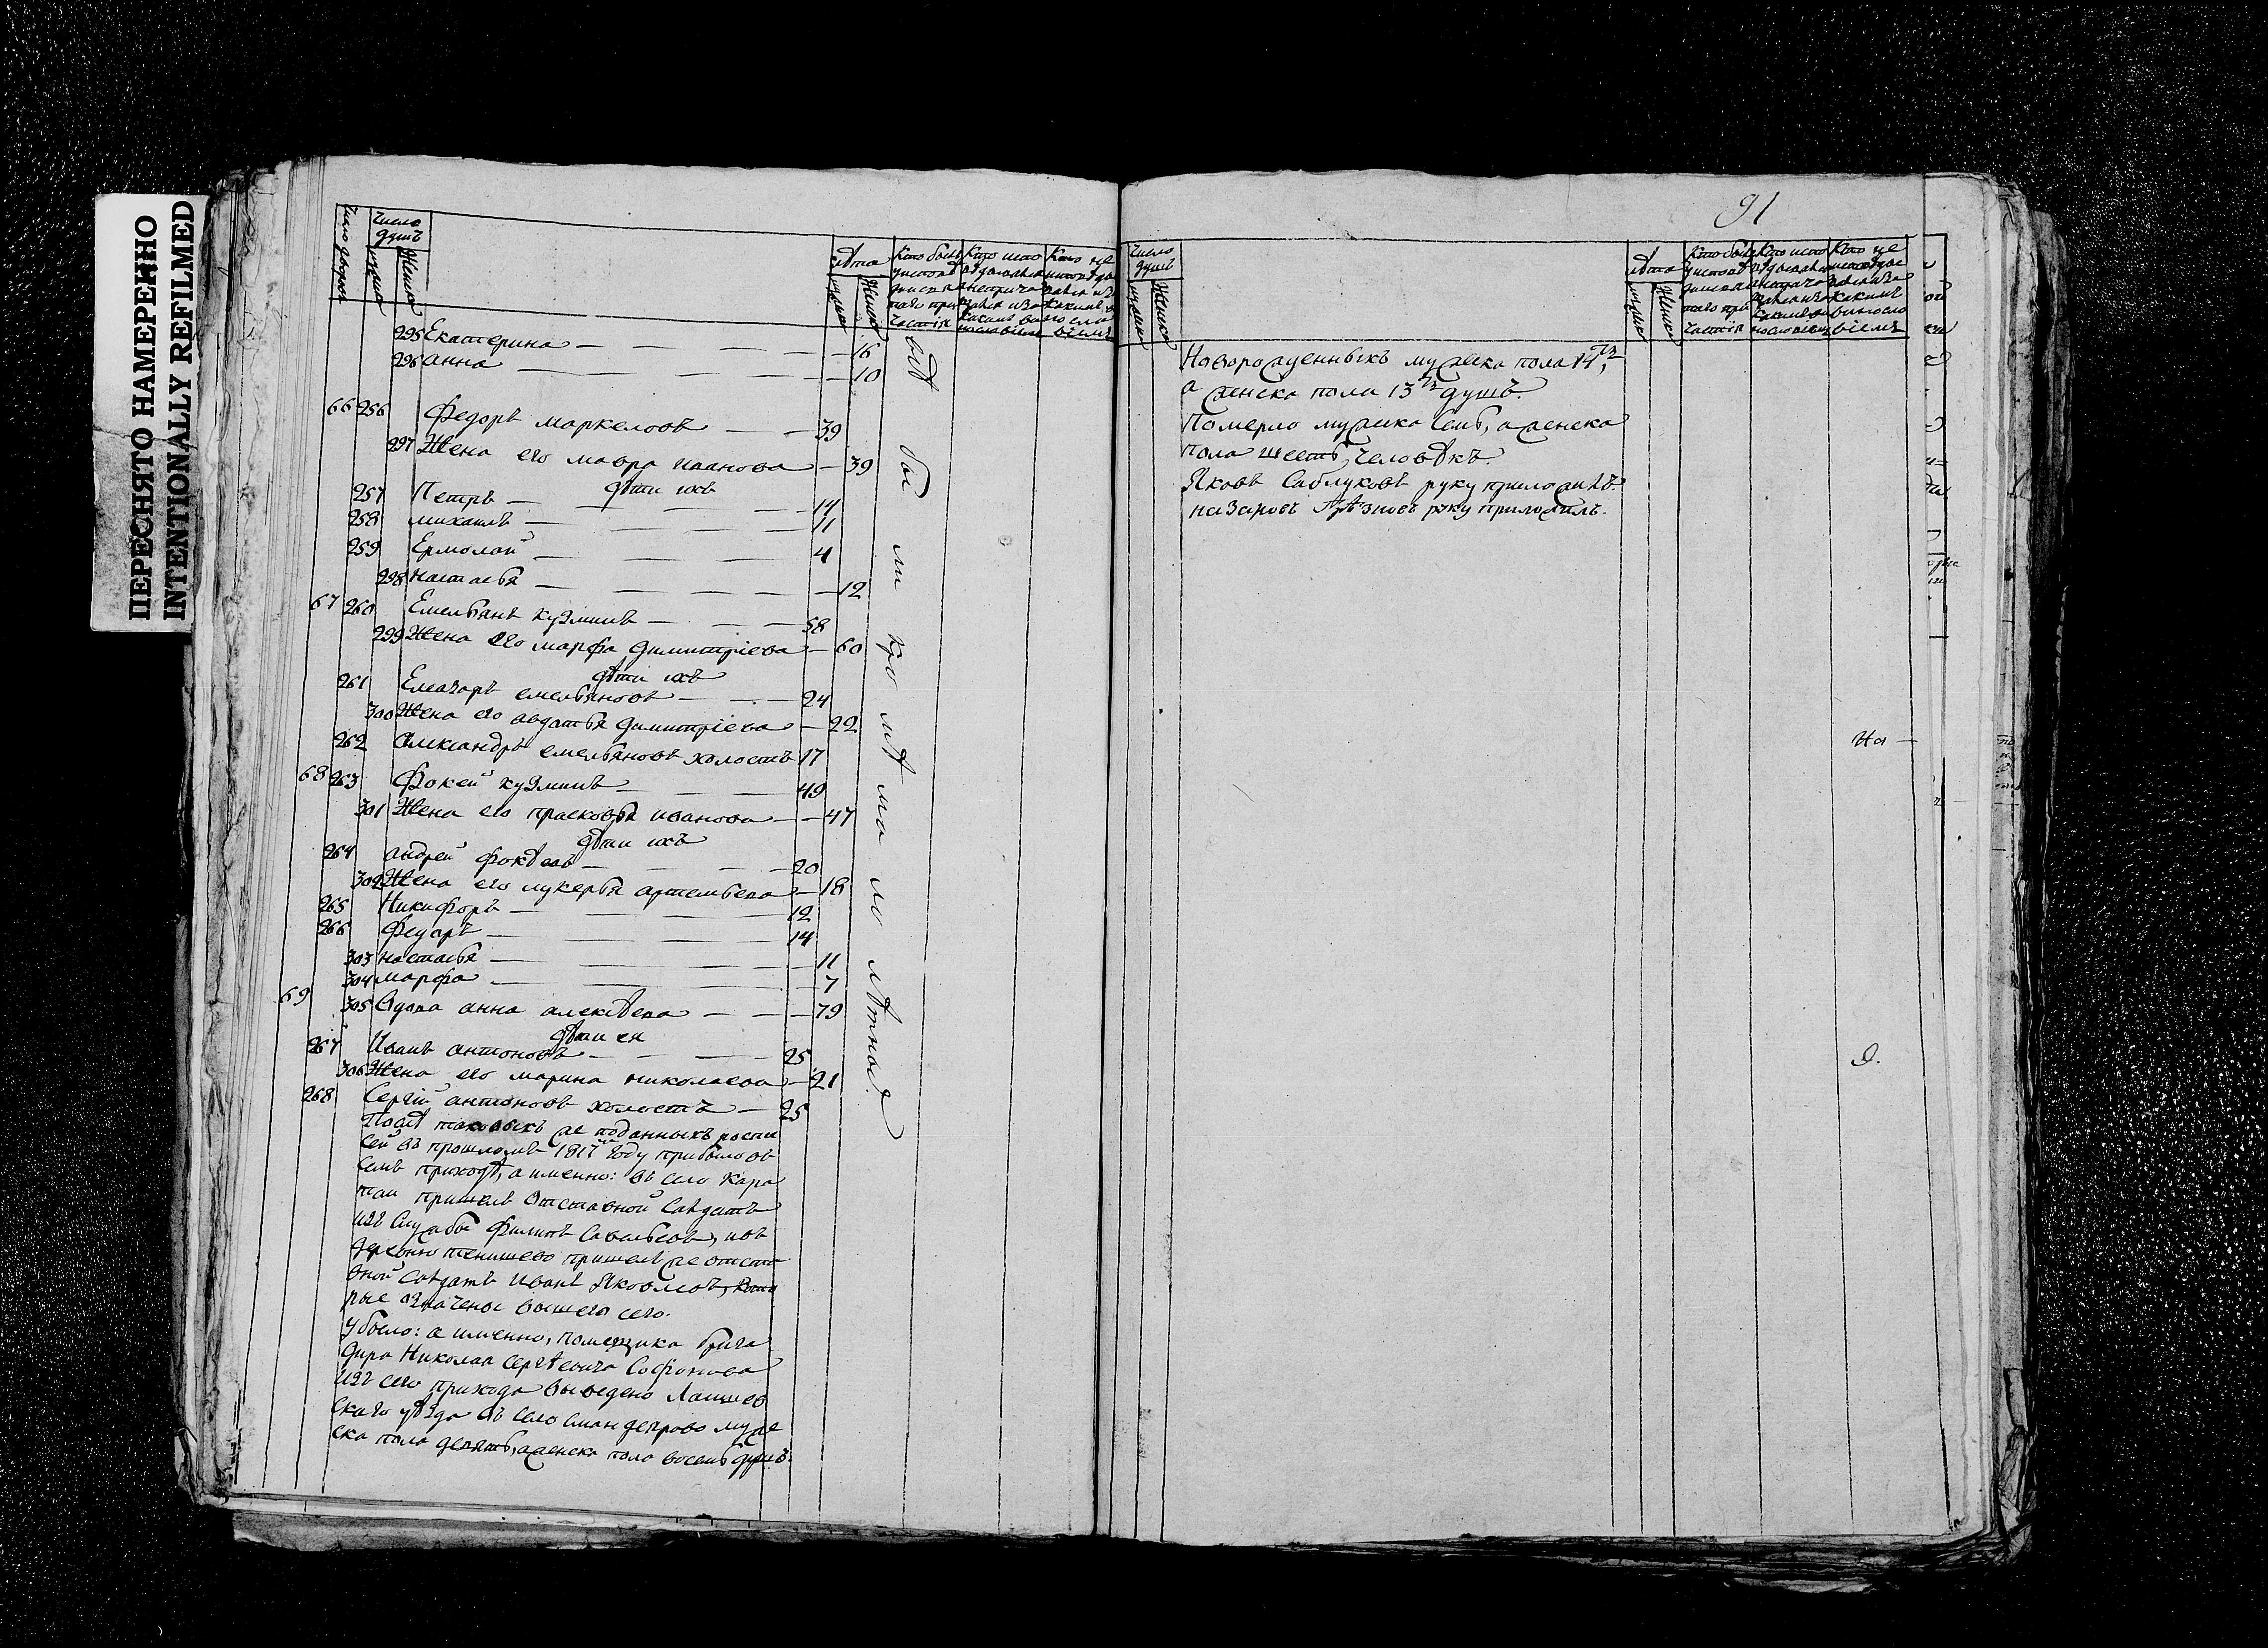 ПЕРЕСНЯТО НАМЕРЕННО
INTENTIONALLY REFILMED
Число дворов
Число душъ
мужска
Женска
лѣта
мужск
Женск
295 Екатерина — 16
296 анна — 10
66 256 Федоръ маркеловъ — 39
297 Жена его мавра иванова — 39
дѣти ихъ
257 Петръ — 14
258 михаилъ — 11
259 Ермолай — 4
298 настасья — 12
67 260 Емельянъ кузминъ — 58
299 Жена его марфа димитріева — 60
дѣти ихъ
261 Елеазаръ емельяновъ — 24
300 Жена его авдотья димитріева — 22
262 Александръ емельяновъ холостъ 17
68 263 Фокей кузминъ — 49
301 Жена его прасковья иванова — 47
дѣти ихъ
264 андрей фокѣевъ — 20
302 Жена его лукерья артемьева — 18
265 Никифоръ — 12
266 Федоръ — 14
303 настасья — 11
304 марфа — 7
69 305 Вдова анна алексѣева — 79
дѣти ея
267 Иванъ антоновъ — 25
306 Жена его марина николаева — 21
268 Сергій антоновъ холостъ — 25
Послѣ таковыхъ же поданныхъ роспи
сей въ прошломъ 1817 году прибыло въ
семъ приходѣ, а именно: въ село Кара
таи пришелъ отставной салдатъ
изъ службы Филипъ Савельевъ, и въ
деревню тенишево пришелъ же отста
вной салдатъ Иванъ Яковлевъ, кото
рые означены вышего сего.
убыло: а именно, помещика брига
дира Николая Сергѣевича
изъ сего прихода выведено Лаишев
скаго уѣзда въ село мужс
ска пола девять, а женска пола восемь душъ.
всѣ бы ли кро мѣ ма ло лѣтныхъ
91
Число душъ
мужска
Женска
лѣта
мужск
Женск
Новорожденныхъ мужска пола 14,
а женска пола 13 душъ.
Померло мужска семь, а женска
пола шесть человѣкъ.
Яковъ Саблуковъ руку приложилъ.
руку приложилъ.